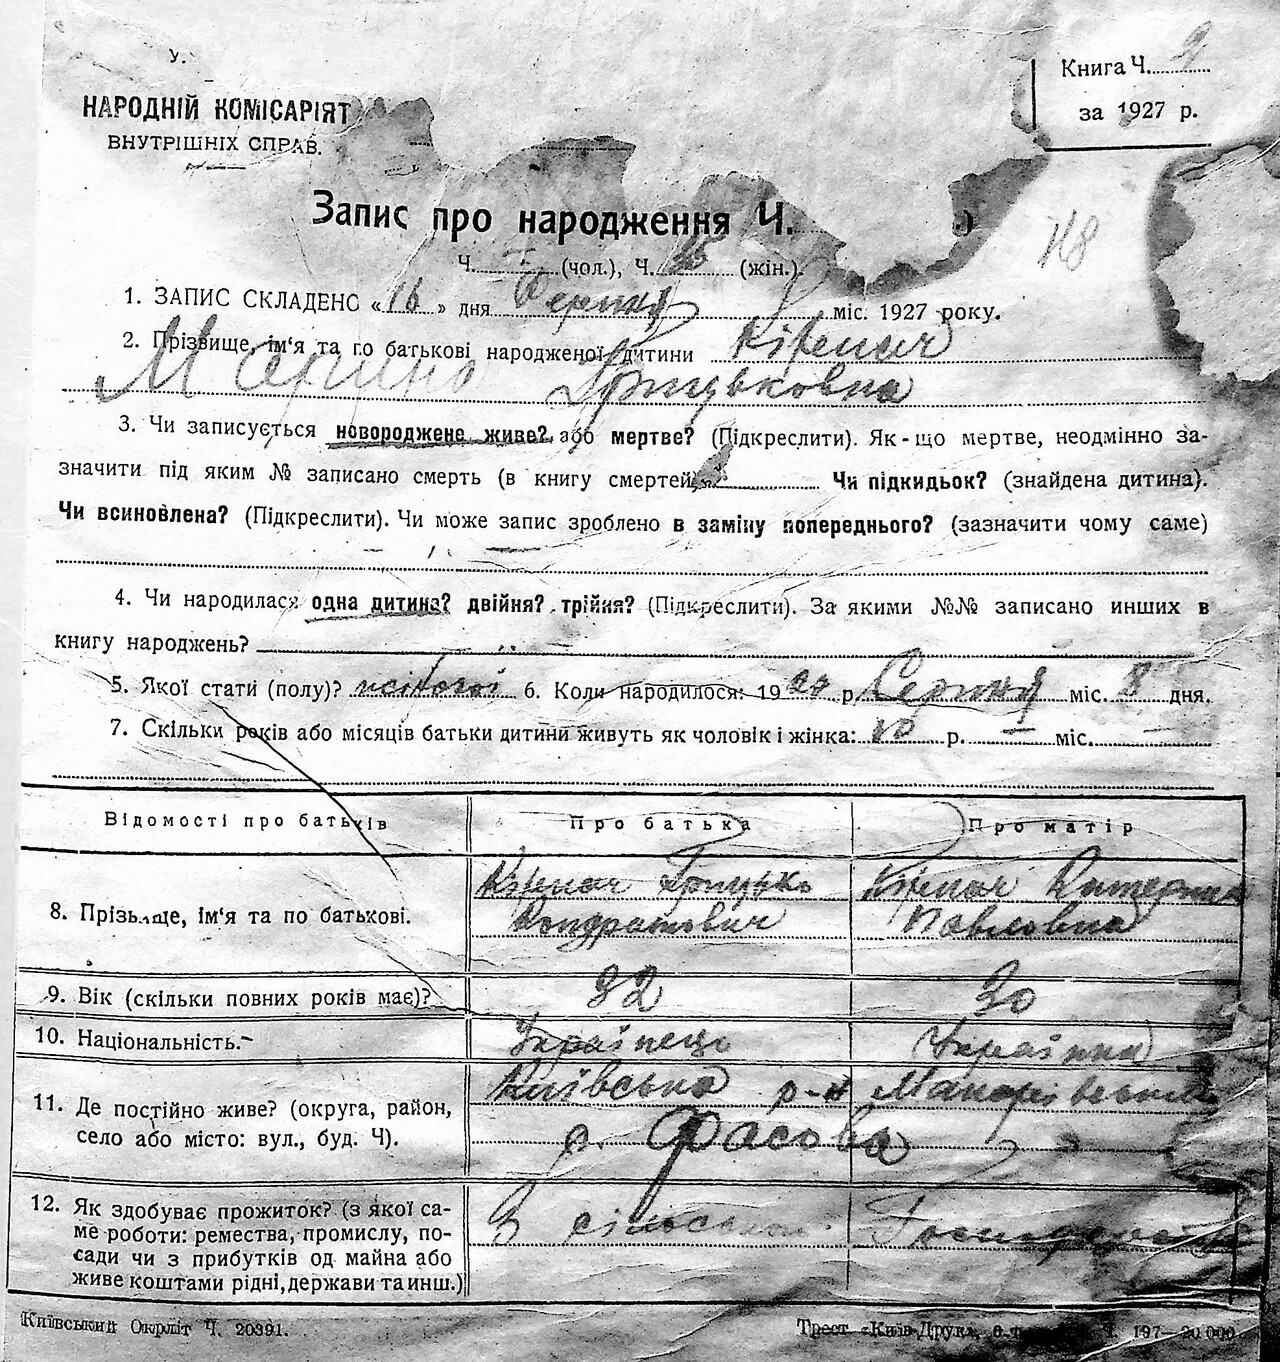 У.
Книга Ч. 2
НАРОДНІЙ КОМІСАРІЯТ
за 1927 р.
ВНУТРІШНІХ СПРАВ.
Запис про народження Ч.
148
Ч. — (чол.), Ч. 35 (жін.).
1. ЗАПИС СКЛАДЕНО «16» дня Серпня міс. 1927 року.
2. Прізвище, ім'я та по батькові народженої дитини Кірепач
Марина Грицьковна
3. Чи записується новороджене живе? або мертве? (Підкреслити). Як-що мертве, неодмінно за-
значити під яким № записано смерть (в книгу смертей) Чи підкидьок? (знайдена дитина).
Чи всиновлена? (Підкреслити). Чи може запис зроблено в заміну попереднього? (зазначити чому саме)
4. Чи народилася одна дитина? двійня? трійня? (Підкреслити). За якими №№ записано инших в
книгу народжень?
5. Якої стати (полу)? жіночої 6. Коли народилося: 1927 р. Серпня міс. 8 дня.
7. Скільки років або місяців батьки дитини живуть як чоловік і жінка: 10 р. — міс. —
Відомості про батьків Про батька Про матір
8. Прізвище, ім'я та по батькові. Кірепач Грицько Кірепач Катерина
Кондратович Павловна
9. Вік (скільки повних років має)? 32 30
10. Національність. Українець Українка
11. Де постійно живе? (округа, район, Київська р-н Макарівський
село або місто: вул., буд. Ч). с. Фасова
12. Як здобуває прожиток? (з якої са- З сільського Господарства
ме роботи: ремества, промислу, по-
сади чи з прибутків од майна або
живе коштами рідні, держави та инш.)
Київський Окрліт Ч. 20391. Трест «Київ-Друк», 197—20.000